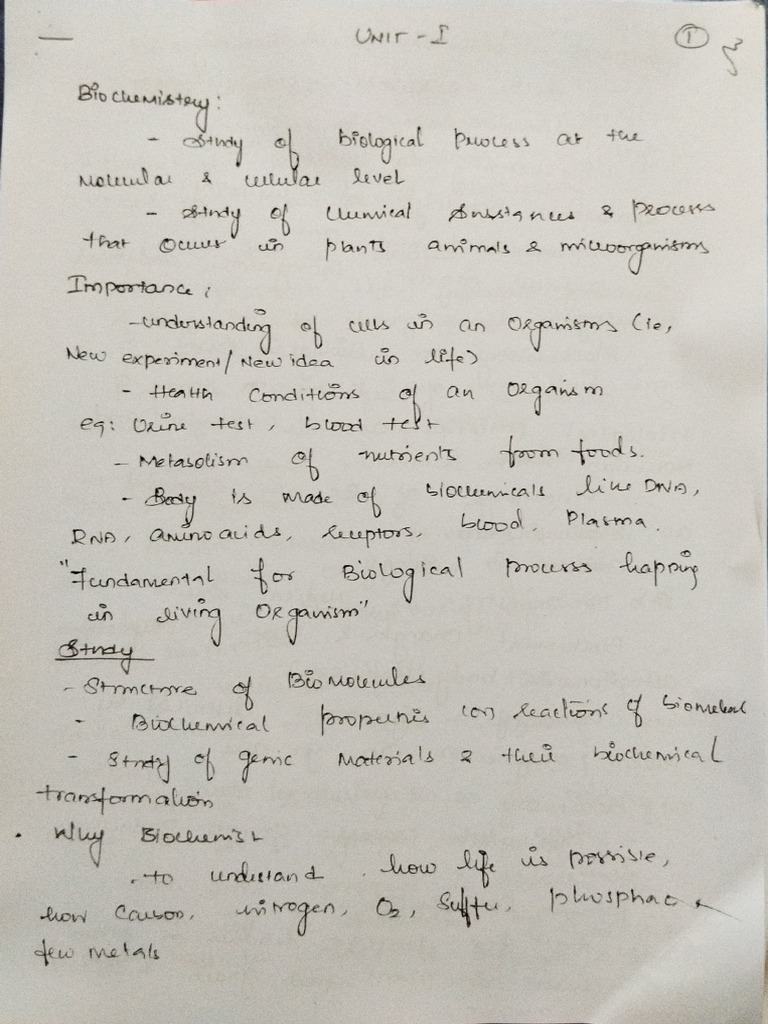 UNIT - I
1
Biochemistry:
- Study of biological Process at the
Molecular & cellular level
- study of chemical Substances & Process
that occurs in plants animals & microorganisms
Importance:
- understanding of cells in an Organisms (ie,
New experiment/ New idea in life)
- Health Conditions of an Organism
eg: Urine test, blood test
- Metabolism of nutrients from foods.
- Body is made of biochemicals like DNA,
RNA, amino acids, receptors, blood, Plasma.
"Fundamental for Biological process happing
in living Organism"
Study
- Structure of BioMolecules
- Biochemical properties (or) reactions of
- Study of genic Materials & their biochemical
transformation
. Why Biochemist
. to understand how life is possible,
how Carbon, nitrogen, O2,
few metals